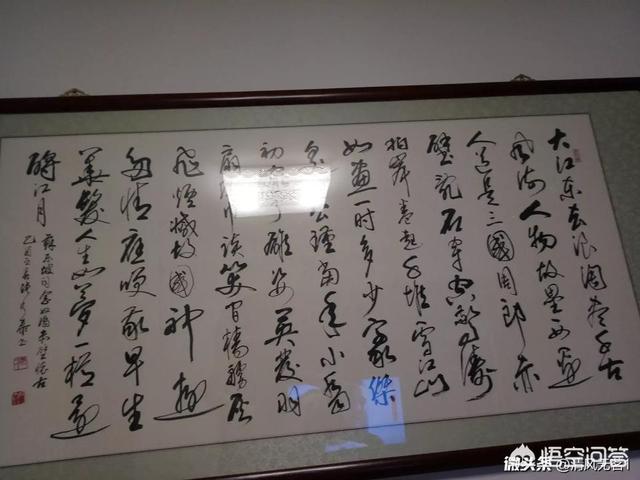 大江东去浪淘尽千古
风流人物故垒西边
人道是三國周郎赤
壁乱石穿空惊涛
拍岸卷起千堆雪江山
如畫一时多少豪傑
公瑾当年小乔
初嫁了雄姿英发羽
扇纶巾谈笑间樯橹灰
飞烟灭故國神遊
多情应笑我早生
華髮人生如梦一樽还
酹江月
苏东坡词念奴娇赤壁怀古
悟空问答
微头条